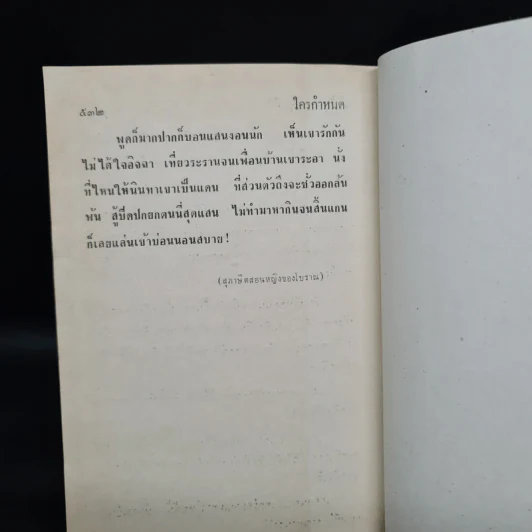 ๕๓๒
ใครกำหนด
พูดก็มากปากก็บอนแสนงอนนัก เห็นเขารักกัน
ไม่ได้ใจอิจฉา เที่ยวระรานจนเพื่อนบ้านเขาระอา นั่ง
ที่ไหนให้นินทาเขาเป็นแดน ที่ส่วนตัวถึงจะชั่วออกล้น
พัน สู้ปิดปกยกตนนี่สุดแสน ไม่ทำมาหากินจนสิ้นแกน
ก็เลยแล่นเข้าบ่อนนอนสบาย!
(สุภาษิตสอนหญิงของโบราณ)